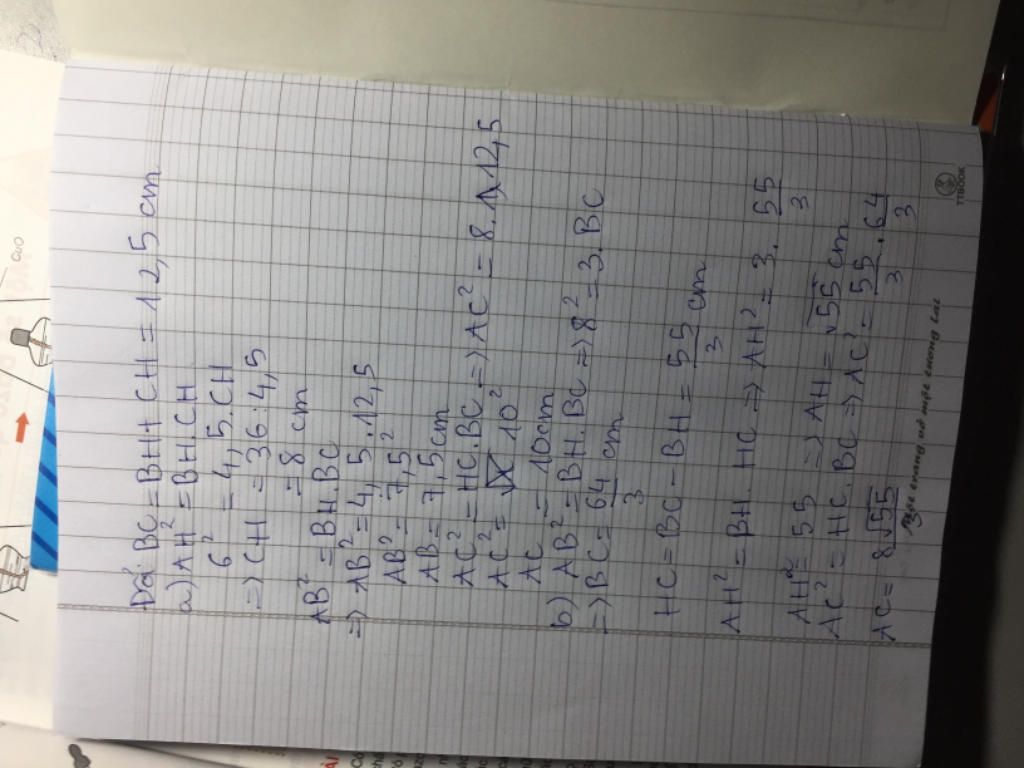 Do đó: BC = BH + CH = 12,5 cm
a) AH² = BH.CH
6² = 4,5.CH
=> CH = 36 : 4,5
= 8 cm
AB² = BH.BC
=> AB² = 4,5.12,5
AB² = 7,5²
AB = 7,5 cm
AC² = HC.BC => AC² = 8.12,5
AC² = 10²
AC = 10cm
b) AB² = BH.BC => 8² = 3.BC
=> BC = 64/3 cm
HC = BC - BH = 55/3 cm
AH² = BH.HC => AH² = 3.55/3
AH² = 55 => AH = √55 cm
AC² = HC.BC => AC² = 55/3.64/3
AC = 8√55/3
mBOOK